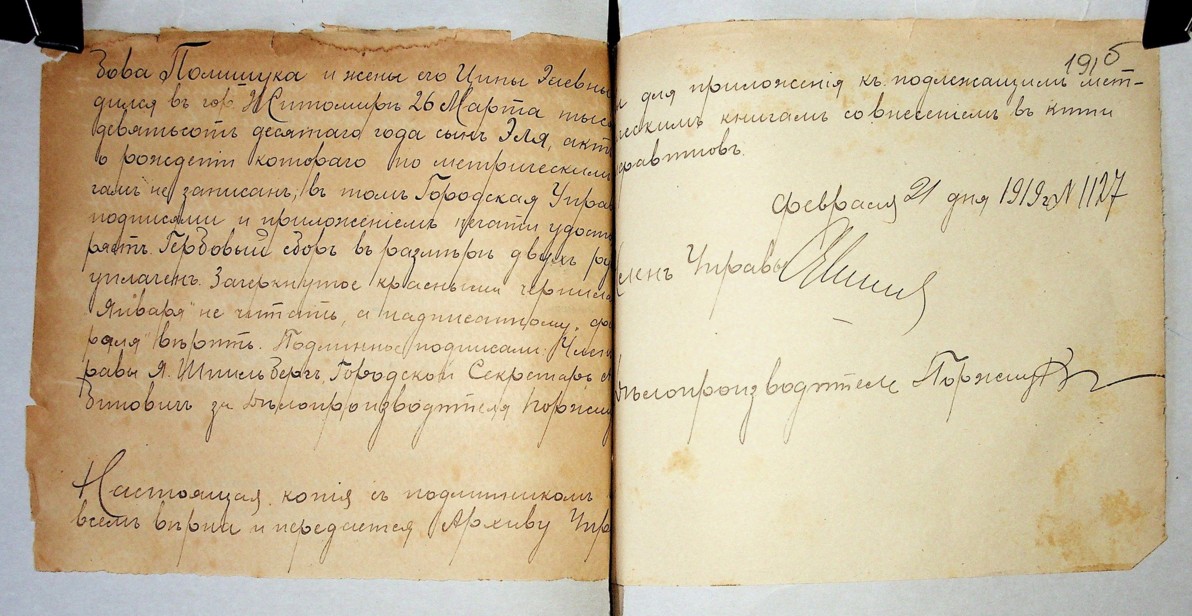 Зова Полищука и жены его Цины Эlевны
дился въ гор. Житомирѣ 26 Марта тыс
девятьсотъ десятаго года сынъ Эля, актъ
о рожденіи котораго по метрическимъ
гамъ не записанъ, въ томъ Городская Управ
подписями и приложеніемъ печати удост
ряетъ. Гербовый сборъ въ размѣрѣ двухъ ру
уплаченъ. Зачеркнутое красными чернила
"Января" не читать, а надписанному "фе
раля" вѣрить. Подлинное подписали: Член
равы Я. Шпильбергъ, Городской Секретарь
Зиновичъ за Дѣлопроизводителя Коржен
Настоящая копія съ подлинникомъ
всемъ вѣрна и передается Архиву Упр
1916
и для приложенія къ подлежащимъ мет-
ческимъ книгамъ со внесеніемъ въ книги
фавитовъ.
Февраля 21 дня 1919 г. N 1127
Членъ Управы
Дѣлопроизводитель